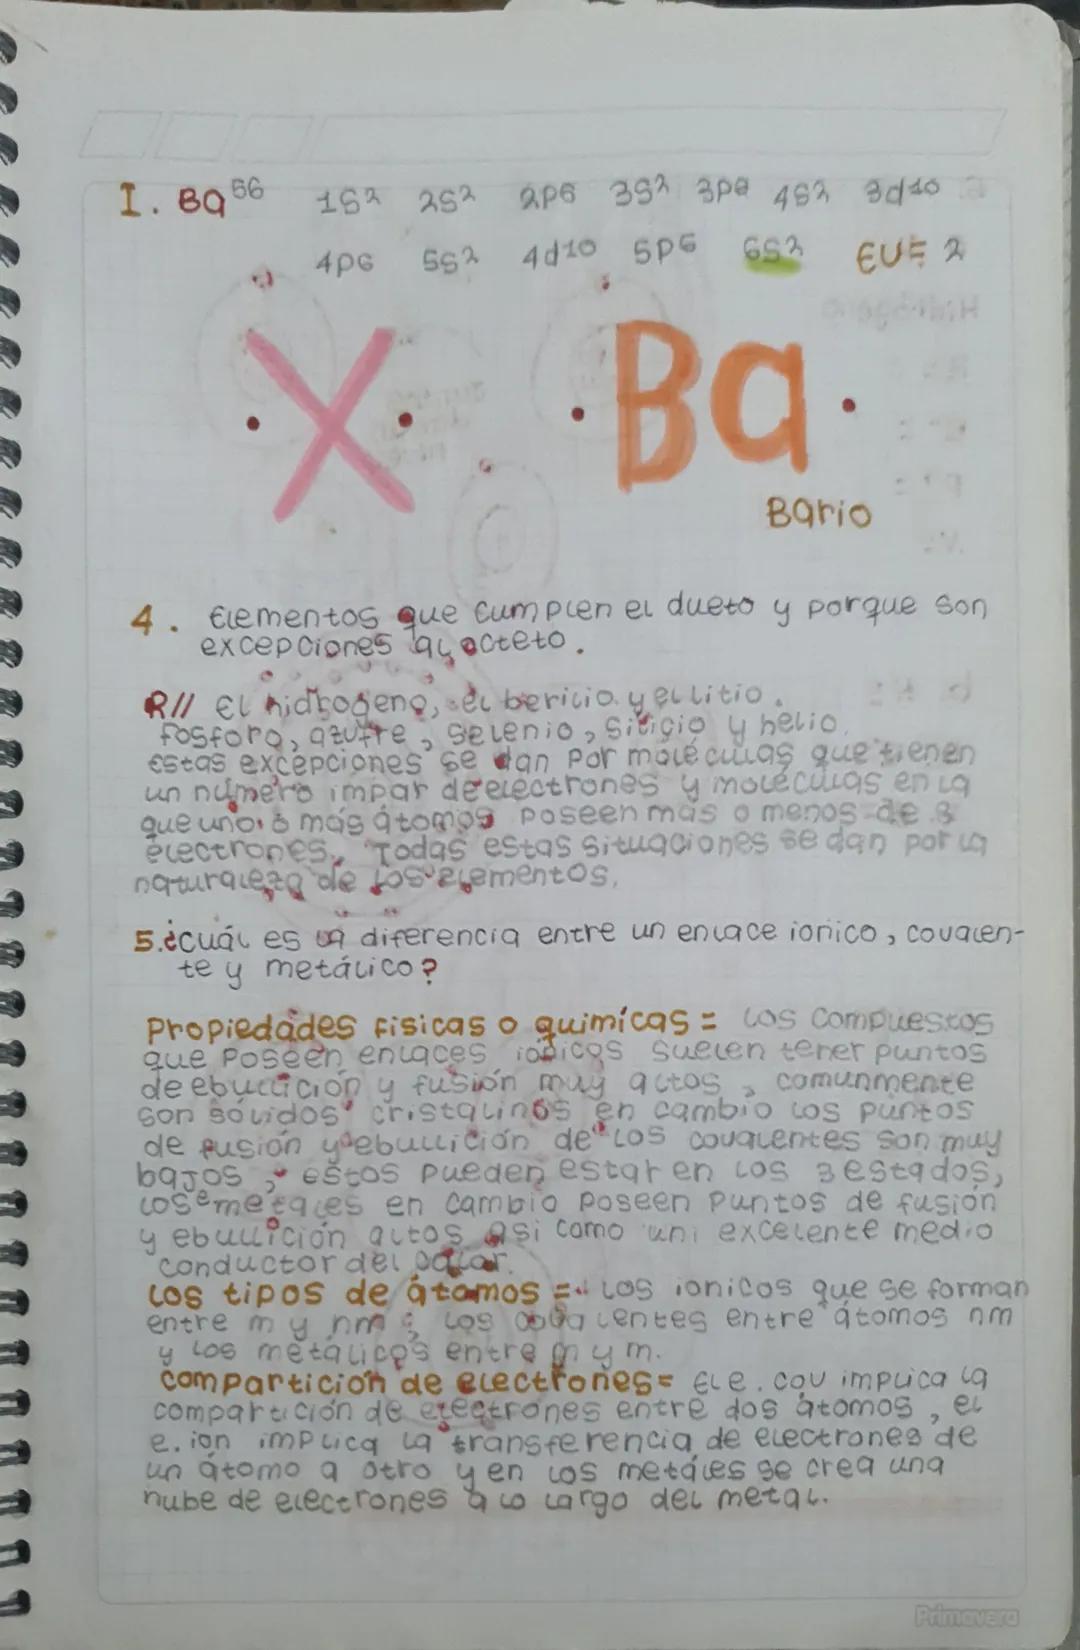 I. Ba 56 1s2 2s2 2p6 3s2 3p6 4s2 3d10
4p6 5s2 4d10 5p6 6s2 EV= 2
X Ba
Bario
4. Elementos que cumplen el dueto y porque son
excepciones al octeto.
R// El hidrogeno, el berilio y el litio.
fosforo, azufre, selenio, silicio y helio.
Estas excepciones se dan por moléculas que tienen
un número impar de electrones y moléculas en la
que uno o más átomos poseen más o menos de 8
electrones. Todas estas situaciones se dan por la
naturaleza de los elementos.
5.¿cuál es la diferencia entre un enlace ionico, covalen-
te y metálico?
Propiedades fisicas o quimícas = Los compuestos
que poseen enlaces iónicos suelen tener puntos
de ebullición y fusión muy altos, comunmente
son sólidos cristalinos en cambio los puntos
de fusión y ebullición de los covalentes son muy
bajos, estos pueden estar en los 3 estados,
los metales en cambio poseen puntos de fusión
y ebullición altos asi como un excelente medio
conductor del calor.
Los tipos de átomos = Los ionicos que se forman
entre m y nm, los covalentes entre átomos nm
y los metálicos entre m y m.
compartición de electrones= El e. cov implica la
compartición de electrones entre dos átomos, el
e. ion implica la transferencia de electrones de
un átomo a otro y en los metáles se crea una
nube de electrones a lo largo del metal.
Primavera